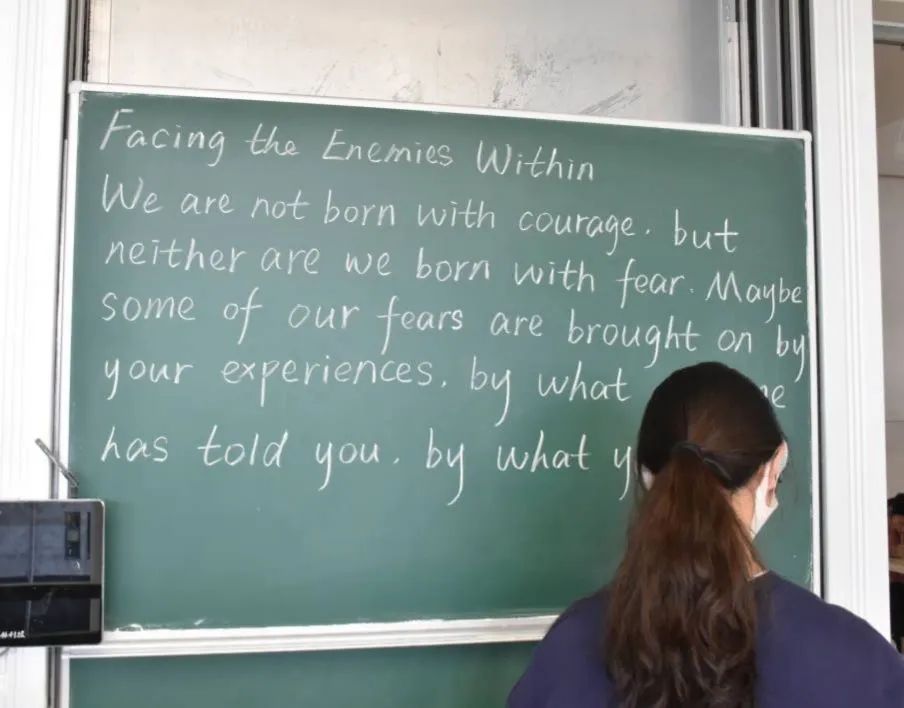 Facing the Enemies Within
We are not born with courage. but
neither are we born with fear. Maybe
some of our fears are brought on by
your experiences. by what
has told you. by what